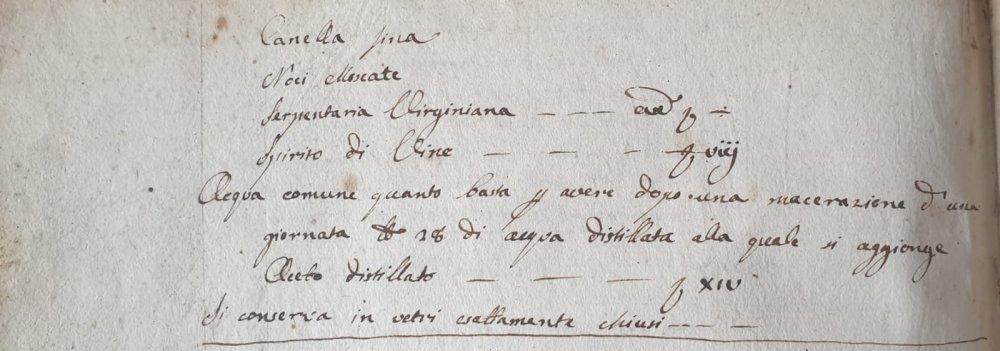 Canella fina
Noci Moscate
Serpentaria Virginiana — — — aa ʒ ÷
Spirito di Vino — — — ʒ viij
Acqua comune quanto basta ꝑ avere dopo una macerazione d'una
giornata ℔ 28 di acqua distillata alla quale si aggionge
Aceto distillato — — — ʒ XIV
Si conserva in vetri esattamente chiusi — — —